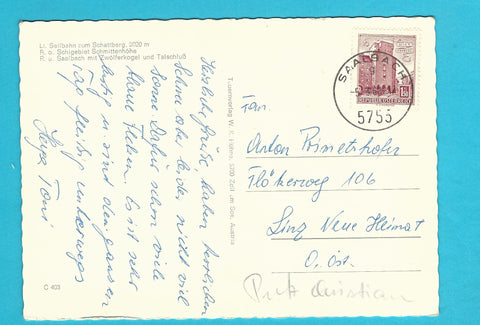 Li. Seilbahn zum Schattberg, 2020 m
R. o. Schigebiet Schmittenhöhe
R. u. Saalbach mit Zwölferkogel und Talschluß
Herzliche Grüße, haben herrlichen
Schnee aber leider nicht viel
Sonne. Dafür schon viele
blaue Flecken. Es ist sehr
lustig u. sind den ganzen
Tag fleißig unterwegs
Toni
C 403
SAALBACH
5753
REPUBLIK ÖSTERREICH
Anton Primetshofer
Flötzerweg 106
Linz Neue Heimat
O. Öst.
Christian